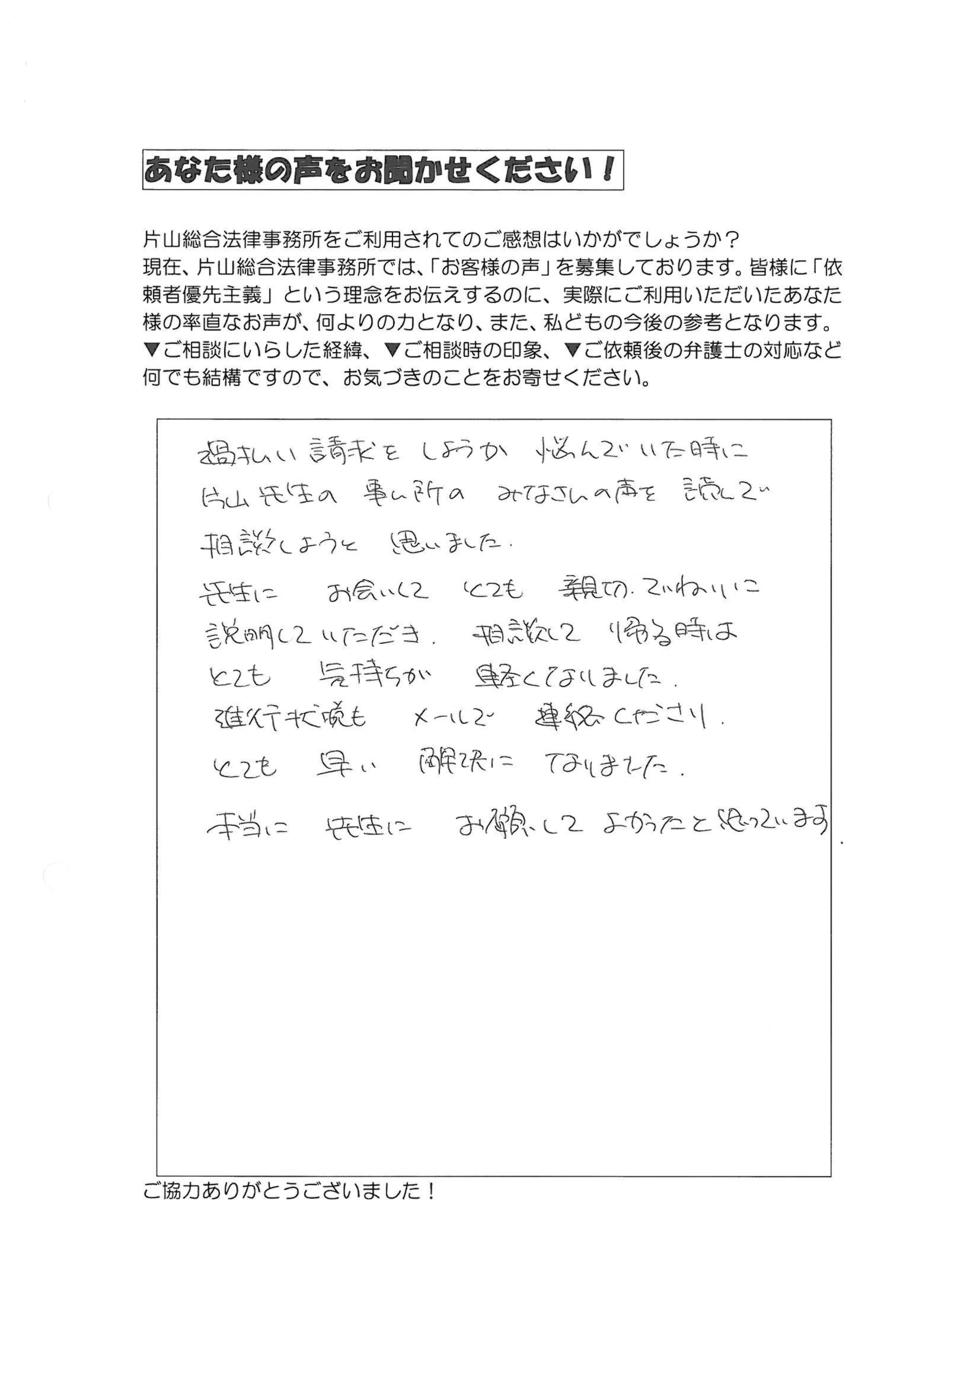 あなた様の声をお聞かせください！
片山総合法律事務所をご利用されてのご感想はいかがでしょうか？
現在、片山総合法律事務所では、「お客様の声」を募集しております。皆様に「依
頼者優先主義」という理念をお伝えするのに、実際にご利用いただいたあなた
様の率直なお声が、何よりの力となり、また、私どもの今後の参考となります。
▼ご相談にいらした経緯、▼ご相談時の印象、▼ご依頼後の弁護士の対応など
何でも結構ですので、お気づきのことをお寄せください。
過払い請求をしようか悩んでいた時に
片山先生の事ム所のみなさんの声を読んで
相談しようと思いました.
先生にお会いしてとても親切.ていねいに
説明していただき.相談して帰る時は
とても気持ちが軽くなりました.
進行状境もメールで連絡くださり.
とても早い解決になりました.
本当に先生にお願いしてよかったと思っています.
ご協力ありがとうございました！